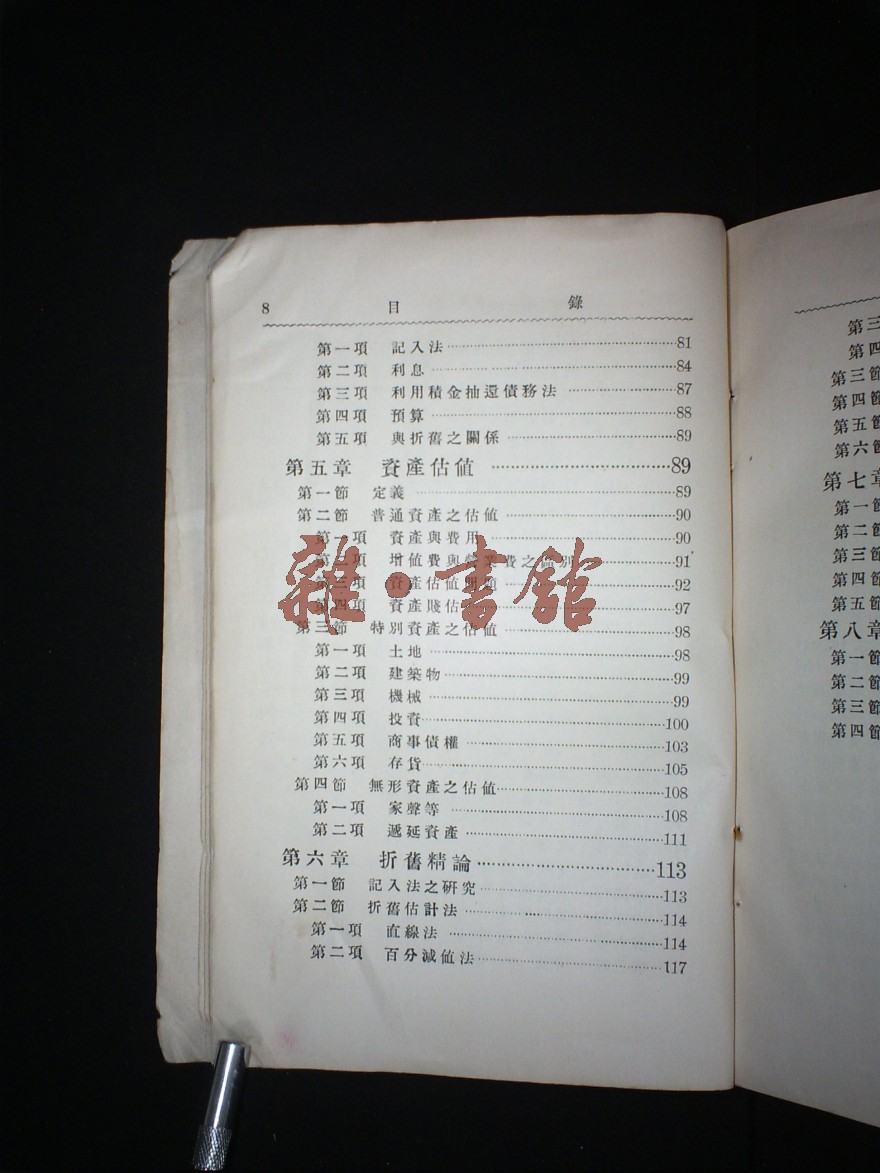 8 目 錄
第一項 記入法 81
第二項 利息 84
第三項 利用積金抽還債務法 87
第四項 預算 88
第五項 與折舊之關係 89
第五章 資產估值 89
第一節 定義 89
第二節 普通資產之估值 90
第一項 資產與費用 90
第二項 增值費與營業費之鑑別 91
第三項 資產估值問題 92
第四項 資產賤估 97
第三節 特別資產之估值 98
第一項 土地 98
第二項 建築物 99
第三項 機械 99
第四項 投資 100
第五項 商事債權 103
第六項 存貨 105
第四節 無形資產之估值 108
第一項 家聲等 108
第二項 遞延資產 111
第六章 折舊精論 113
第一節 記入法之研究 113
第二節 折舊估計法 114
第一項 直線法 114
第二項 百分減值法 117
雜·書館
第三
第四
第三節
第四節
第五節
第六節
第七章
第一節
第二節
第三節
第四節
第五節
第八章
第一節
第二節
第三節
第四節